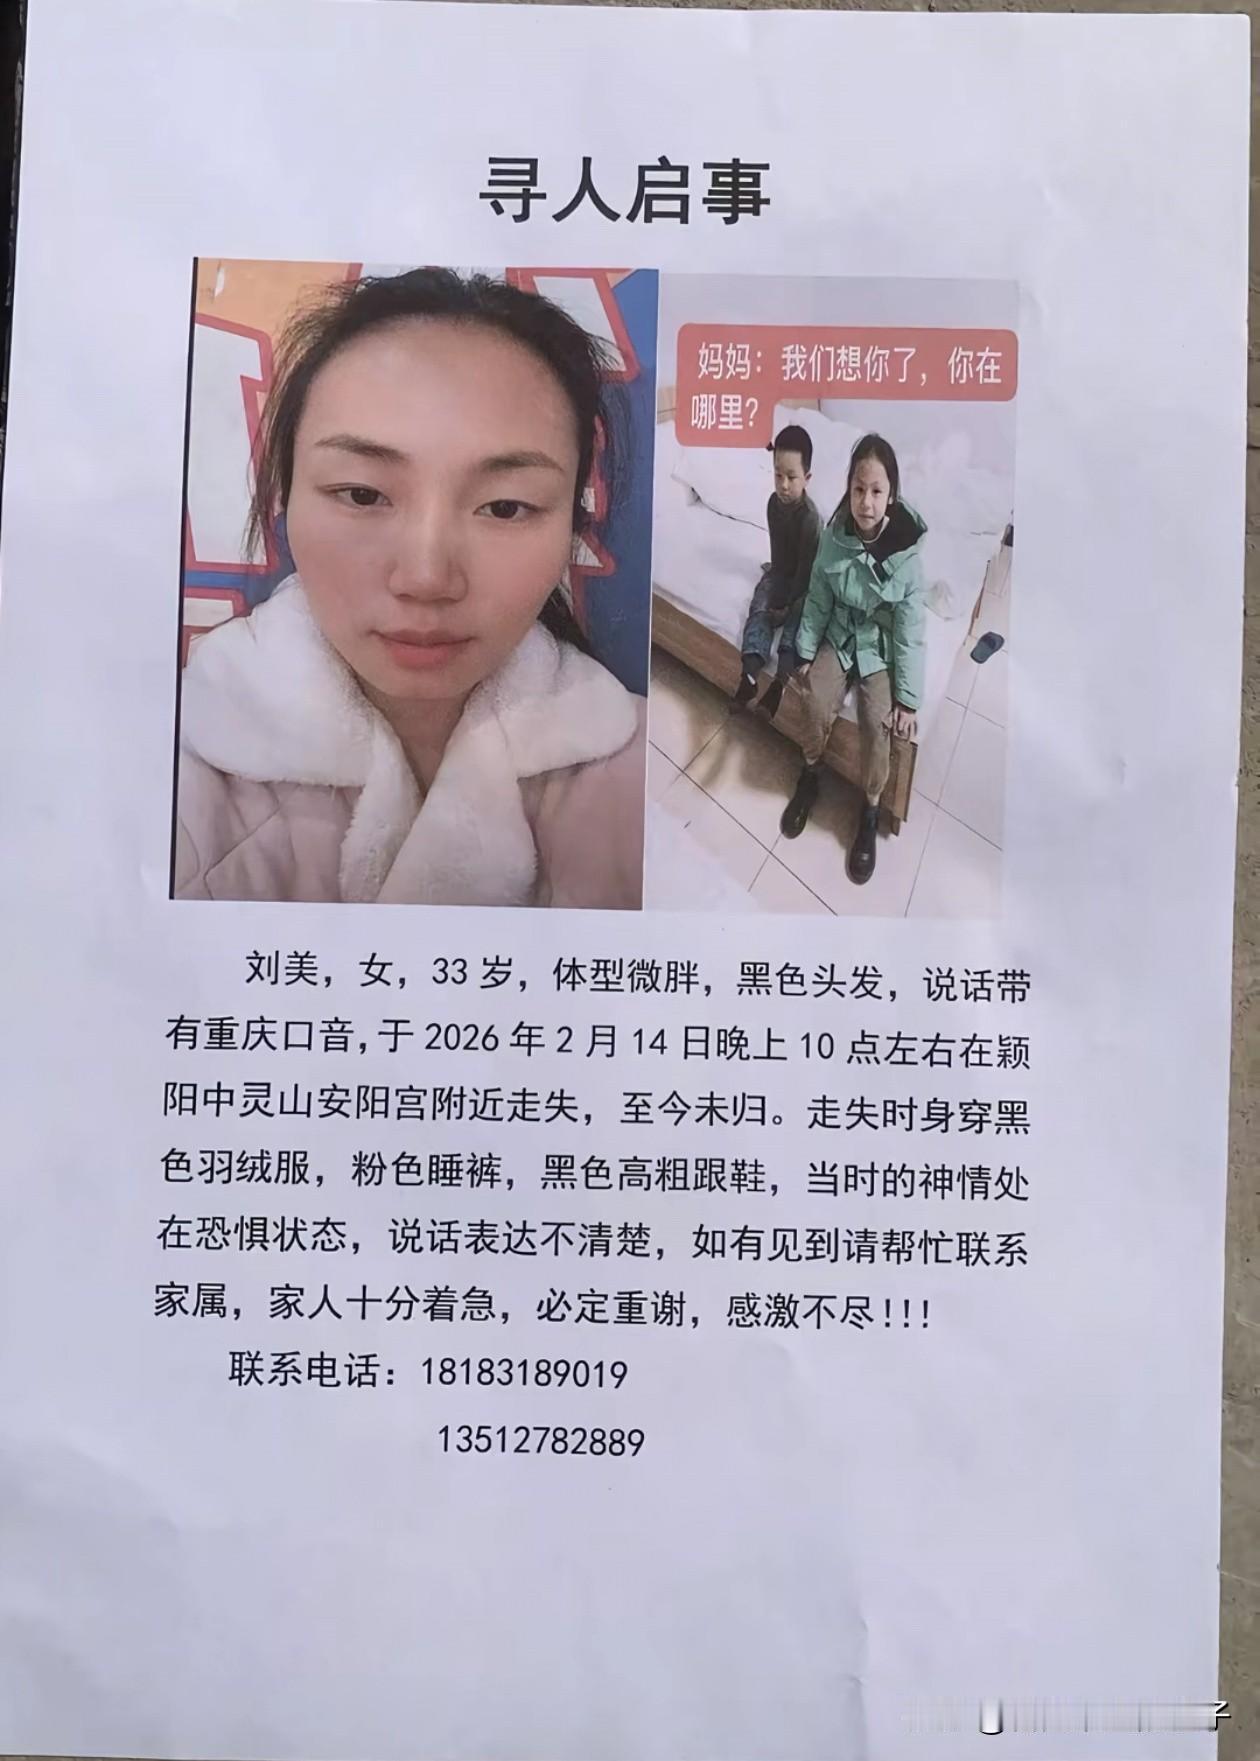 寻人启事
妈妈：我们想你了，你在
哪里？
刘美，女，33岁，体型微胖，黑色头发，说话带
有重庆口音，于2026年2月14日晚上10点左右在颍
阳中灵山安阳宫附近走失，至今未归。走失时身穿黑
色羽绒服，粉色睡裤，黑色高粗跟鞋，当时的神情处
在恐惧状态，说话表达不清楚，如有见到请帮忙联系
家属，家人十分着急，必定重谢，感激不尽!!!
联系电话：18183189019
13512782889